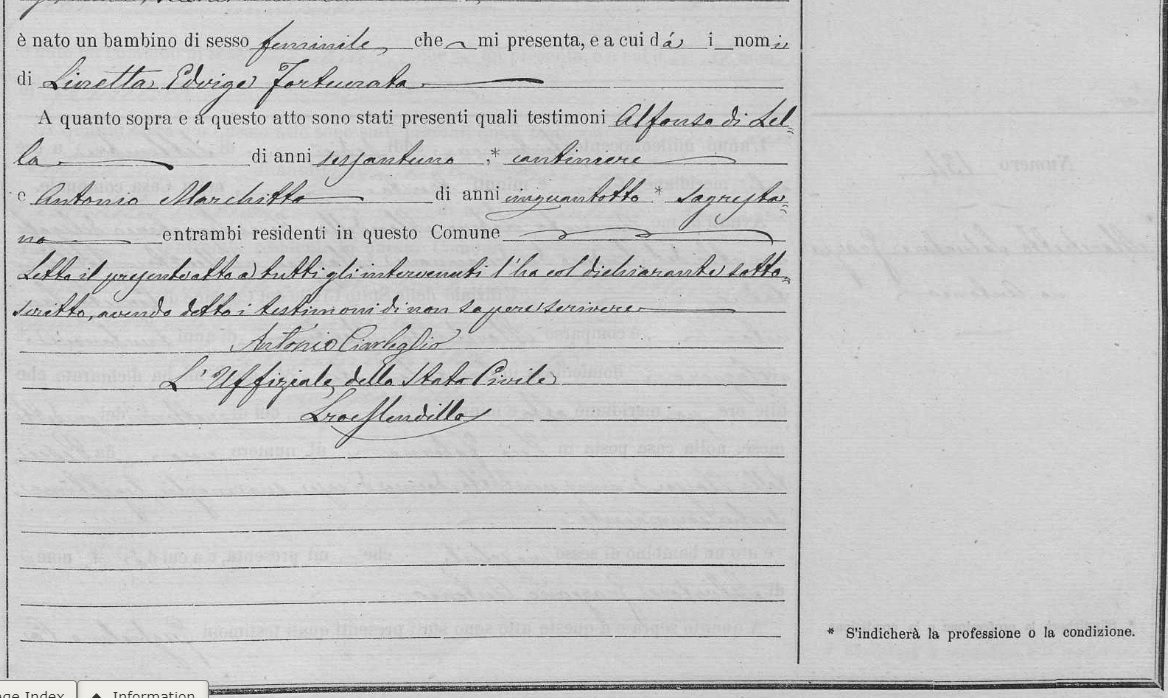 è nato un bambino di sesso feminile che mi presenta, e a cui dà i nomi
di Lisetta Edvige Fortunata
A quanto sopra e a questo atto sono stati presenti quali testimoni Alfonso di Lel=
la di anni sessantuno * cantiniere
e Antonio Marchitto di anni cinquantotto * sagresta=
no entrambi residenti in questo Comune
Letto il presente atto a tutti gli intervenuti l'ha col dichiarante sotto=
scritto, avendo detto i testimoni di non sapere scrivere
Antonio Ciarleglio
L'Uffiziale dello Stato Civile
Mendillo
* S'indicherà la professione o la condizione.
Numero
Index
Information